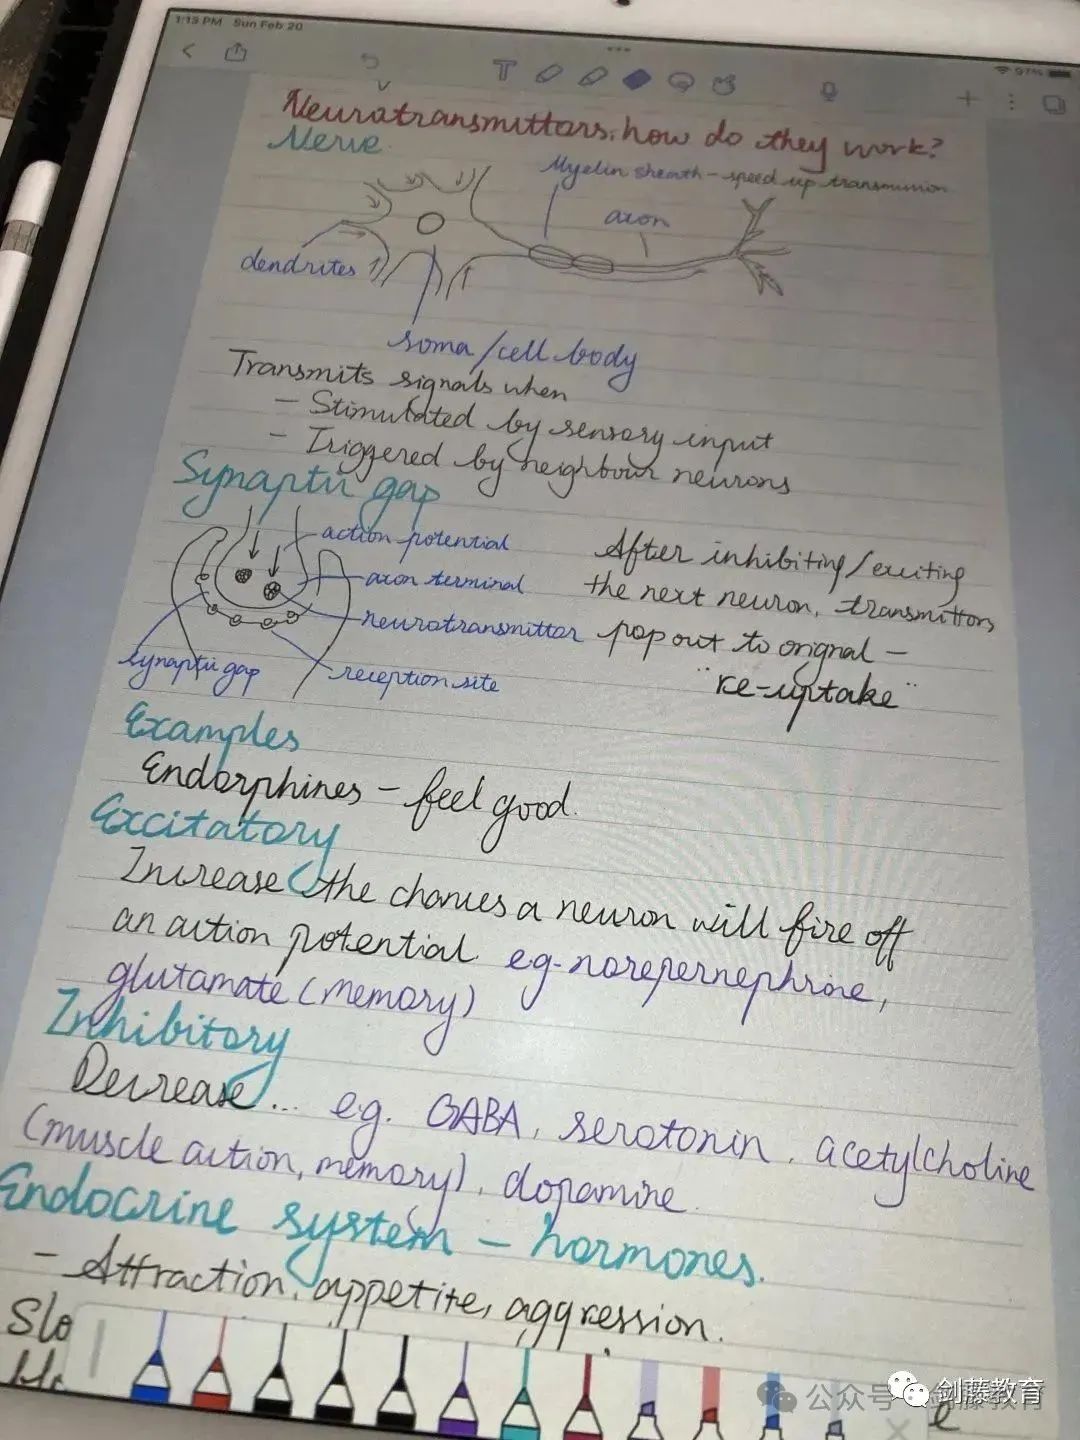 1:13 PM Sun Feb 20
97%
Neurotransmittors: how do they work?
Nerve
Myelin sheath - speed up transmission
axon
dendrites
soma/cell body
Transmits signals when
- Stimulated by sensory input
- Triggered by neighbour neurons
Synaptic gap
action potential
axon terminal
neurotransmitter
reception site
synaptic gap
After inhibiting/exciting
the next neuron, transmittors
pop out to orignal -
"re-uptake"
Examples
Endorphines - feel good.
Excitatory
Increase the chances a neuron will fire off
an action potential. eg. norepernephrine,
glutamate (memory)
Inhibitory
Decrease... e.g. GABA, serotonin, acetylcholine
(muscle action, memory), dopamine.
Endocrine system - hormones.
- Attraction, appetite, aggression.
Slo
公众号·剑藤教育
剑藤教育